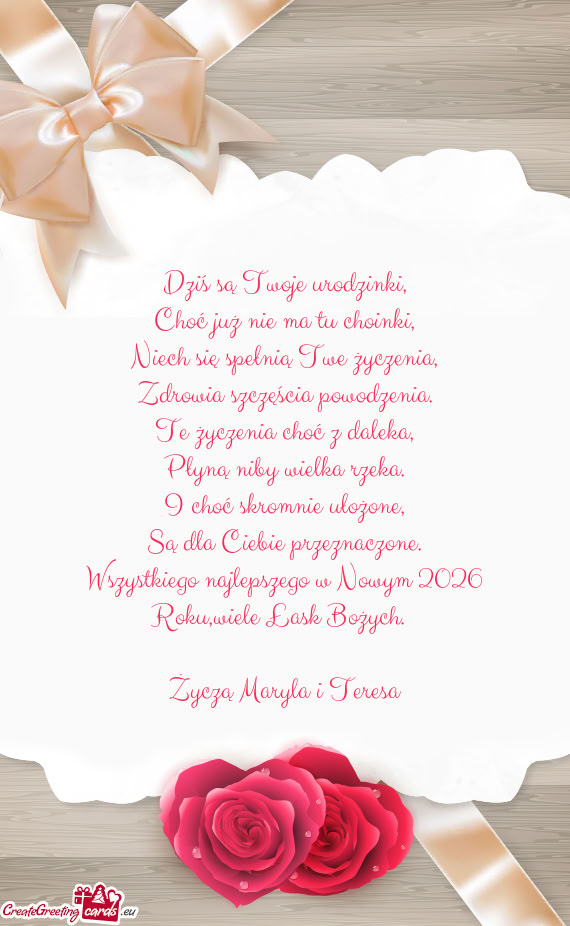 Dziś są Twoje urodzinki,
Choć już nie ma tu choinki,
Niech się spełnią Twe życzenia,
Zdrowia szczęścia powodzenia.
Te życzenia choć z daleka,
Płyną niby wielka rzeka.
I choć skromnie ułożone,
Są dla Ciebie przeznaczone.
Wszystkiego najlepszego w Nowym 2026
Roku,wiele Łask Bożych.
Życzą Maryla i Teresa
CreateGreeting cards .eu